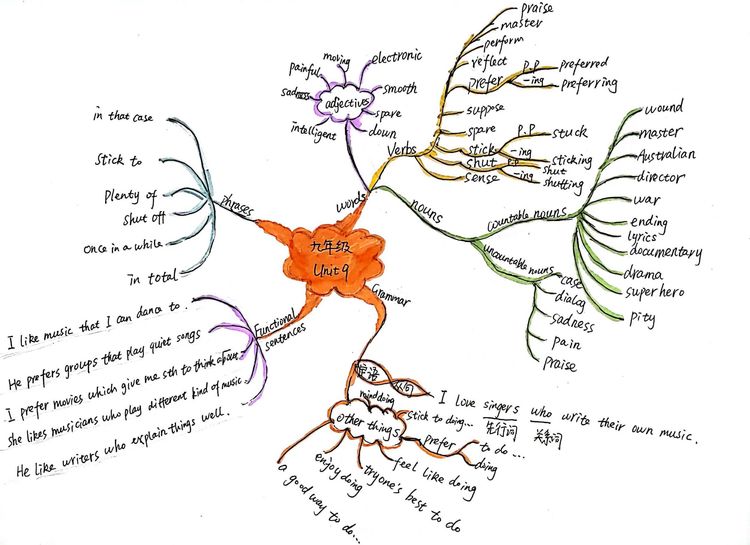 九年级
Unit 9
words
adjectives
moving
electronic
painful
smooth
sadness
spare
intelligent
down
Verbs
praise
master
perform
reflect
prefer
P.P
preferred
-ing
preferring
suppose
spare
stick
P.P
stuck
-ing
sticking
shut
P.P
shut
-ing
shutting
sense
nouns
countable nouns
wound
master
Australian
director
war
ending
lyrics
documentary
drama
superhero
pity
uncountable nouns
case
dialog
sadness
pain
Praise
phrases
in that case
Stick to
Plenty of
shut off
Once in a while
in total
Functional
sentences
I like music that I can dance to.
He prefers groups that play quiet songs
I prefer movies which give me sth to think about
She likes musicians who play different kind of music.
He like writers who explain things well.
Grammar
从句
I love singers who write their own music.
先行词
关系词
Other things
mind doing
stick to doing...
prefer
to do...
doing
feel like doing
try one's best to do
enjoy doing
a good way to do...